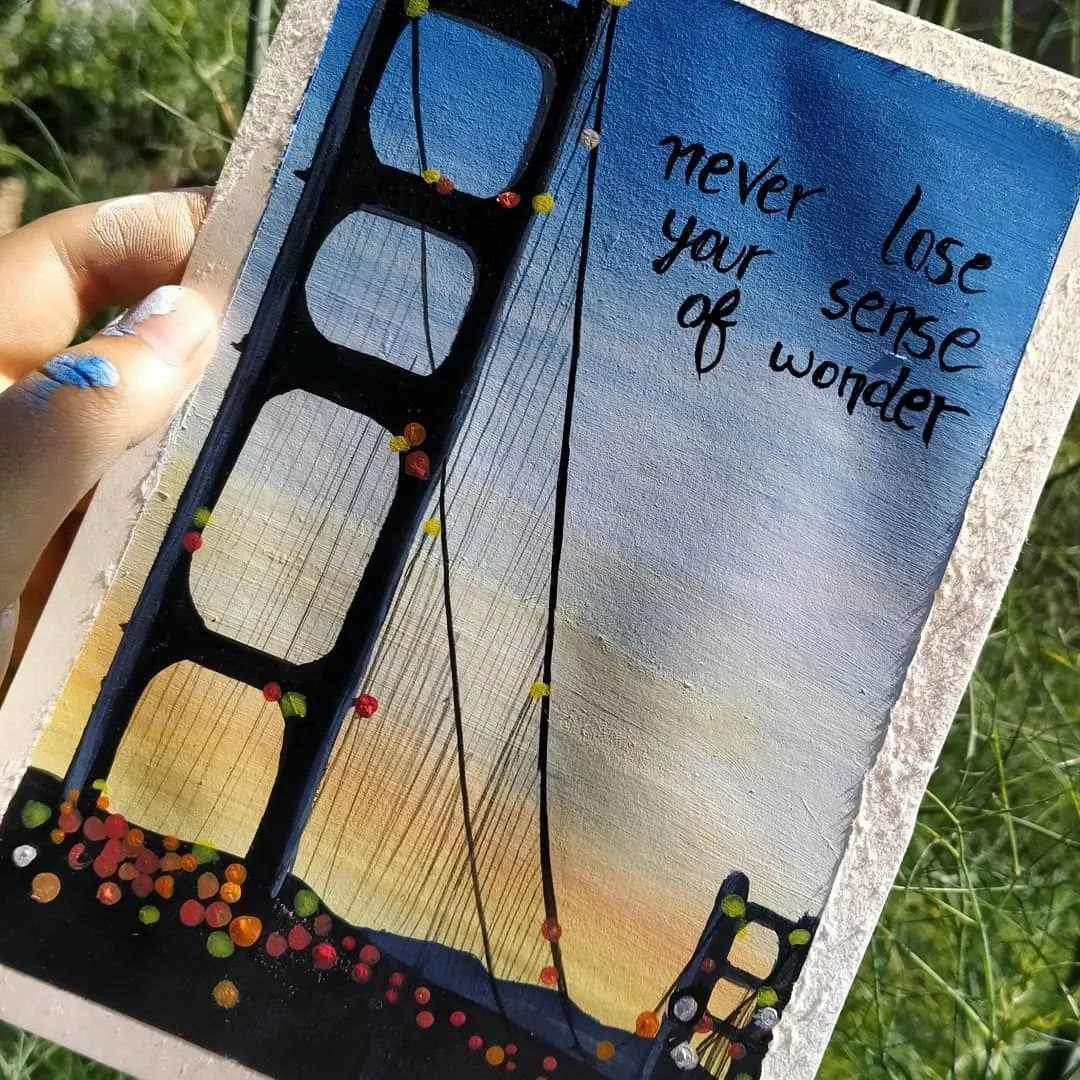 never lose
your sense
of wonder